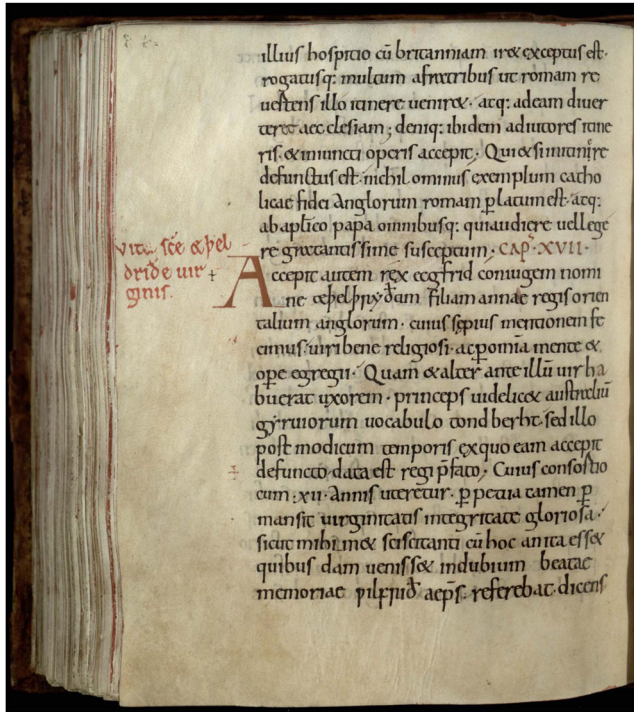 illius hospitio cū britanniam iret exceptus est·
rogatusq: multum afratribus ut romam re
uertens illo itinere ueniret· atq: adeam diuer
teret aecclesiam; deniq: ibidem adiutores itine
ris· & iniuncti operis accepit· Qui etsi initinere
defunctus est· nichil ominus exemplum catho
licae fidei Anglorum romam p̱latum est· atq:
ab aplico papa omnibusq: qui audiere uel lege
re gratantissime susceptum; CAP· XVII·
vita scē æþel
dride uir
ginis.
Accepit autem rex ecgfrid coniugem nomi
ne æþelþryðam Filiam annae regis orien
talium anglorum· cuius sepius mentionem fe
cimus· uiri bene religiosi· ac p̱ omnia mente &
ope egregii· Quam & alter ante illū uir ha
buerat uxorem· princeps uidelicet australiū
gyruiorum uocabulo tondberht· sed illo
post modicum temporis ex quo eam accepit
defuncto· data est regi p̄fato· Cuius consortio
cum ·xii· Annis uteretur· p̱petua tamen p̱
mansit uirginitatis integritate gloriosa·
sicut mihimet sciscitanti cū hoc an ita esset
quibus dam uenisset indubium beatae
memoriae ƿilfrið aep̄s· referebat· dicens